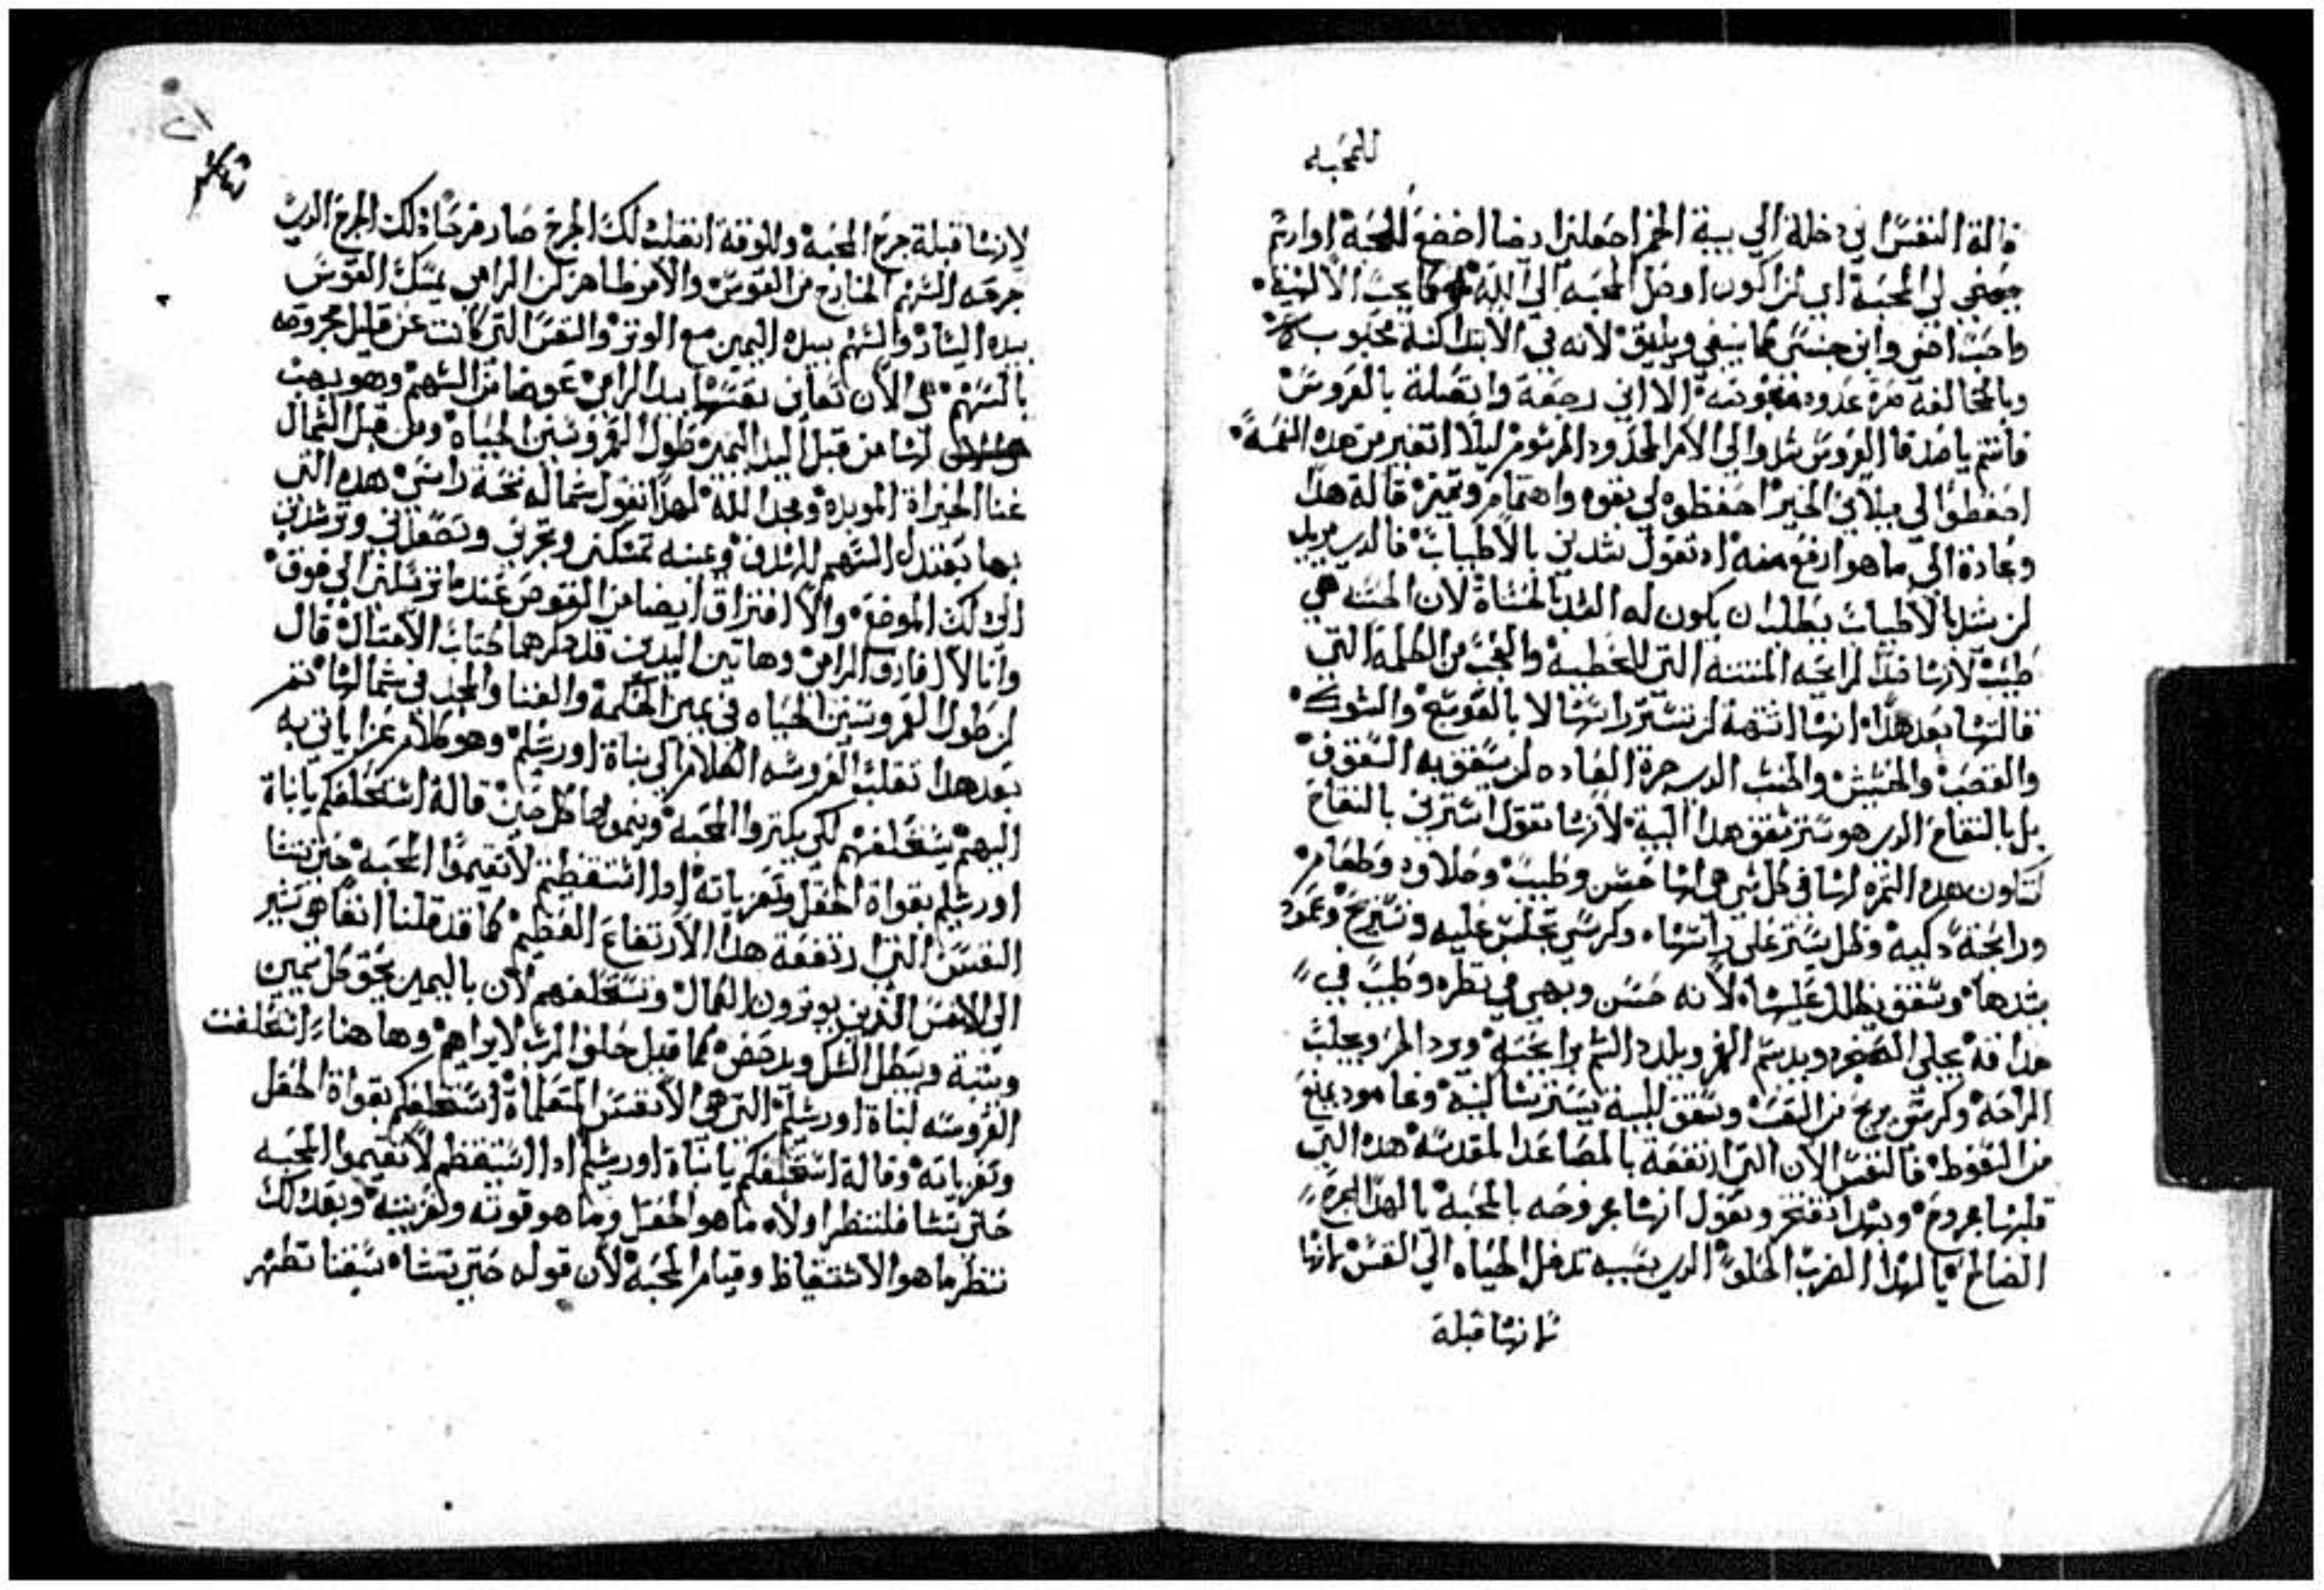 للمحبه
قالة النفس اني دخلة الي بيية الخمر اجعلني ايضا اخضع للمحبة اوارتم
لي المحبة اي لن اكون اوصل المحبه الي الله كما يجب الالهية
واحب اخي وابن جنسي كما ينبغي ويليق لانه في الابتدا كنة محبوب
وبالمخالفة مرة عدوه مبغوضه الا اني رجعة واتصلة بالعروس
فانتم يا اصدقا العروس الي الامر المحدود المرسوم ليلا اتغير من هده النعمة
احفظوا لي ميلاني الخير احفظوه لي بقوه واهتمام وتميز قالة هدا
وعادة الي ما هو ارفع منه اد تقول شددني بالاطياب فالدي يريد
لن يشد بالاطياب يطلب ان يكون له الشد بالحسناة لان الحسنه هي
طيب لانها ضد الرايحه المنتنه التي للخطية والعجب من الكلمه التي
قالتها بعد هدا انها اشتهة لن تستر راسها لا بالعوسج والشوك
والقصب والحشيش والخشب الدي جرة العاده لن يسقف به السقوف
بل بالتفاح الدي هو ستر سقف هدا البية لانها تقول استرني بالتفاح
لتكون هده التمره لها في كل شي هي لها حسن وطيب وحلاوه وطعام
ورايحة دكيه وظل يستر علي راسها وكرسي تجلس عليه وتستريح وعمود
يشدها وسقف يظلل عليها لانه حسن وبهي في نظره وطيب في
مداقة يحلي الحنجره ويدسم الفم ويلدد الشم برايحته ويبرد الحر ويجلب
الراحه وكرسي يريح من التعب وسقف للبية يستر ساكنية وعامود يمنع
من السقوط فالنفس الان التي ارتفعة بالمصاعد المقدسة هده التي
قلبها مجروح وبهدا تفتخر وتقول انها مجروحه بالمحبة يا لهدا الجرح
الصالح يا لهدا الضرب الحلو الدي بسببه تدخل الحياه الي النفس لانها
لانها قبلة
٢١
لانها قبلة جرح المحبة وللوقة انقلب دلك الجرح صار فرحا دلك الجرح الدي
جرحه السهم الخارج من القوس والامر ظاهر لن الرامي يمسك القوس
بيده اليسار والسهم بيده اليمين مع الوتر والنفس التي كانت عن قليل مجروحه
بالسهم هي الان تعاين نفسها بيد الرامي عوضا من السهم وهو يهب
لها من قبل اليد اليمين طول العمر وسنين الحياة ومن قبل الشمال
غنا الخيراة الموبده ومجد الله لهدا تقول شماله تحت راسي هده التي
بها يعتدل السهم للهدف ويمينه تمسكني وتجرني وتصعدني وترشدني
الي دلك الموضع والافتراق ايضا من القوس عندما ترسلني الي فوق
وانا لا افارق الرامي وهاتين اليدين قد دكرهما كتاب الامتال قال
لن طول العمر وسنين الحياه في يمين الحكمة والغنا والمجد في شمالها تم
بعد هدا تقلب العروسه الكلام الي بناة اورشليم وهو كلام عزا ياتي به
اليهم يستحلفهم لكي يكتروا المحبة وينموها كل حين قالة استحلفكم يا بناة
اورشليم بقواة الحقل وتعزياته ادا استيقظتم لاتقيموا المحبه حتي تشا
النفس التي ارتفعة هدا الارتفاع العظيم كما قد قلنا انفا هو تشير
الي الانفس الدين يوترون الكمال وتستحلفهم لان باليمين يحق كل يمين
ويثبة ويبطل الشك ويدحض كما قيل حلف الرب لابراهيم وها هنا استحلفت
العروسه لبناة اورشليم التي هي الانفس المتعلماة استحلفكم بقواة الحقل
وتعزياته وقالة استحلفكم يا بناة اورشليم ادا استيقظتم لاتقيموا المحبه
حتي تشا فلننظر اولاه ما هو الحقل وما هو قوته وتعزيته وبعد دلك
ننظر ما هو الاستيقاظ وقيام المحبة لان قوله حتي تشا سبقنا نظهر